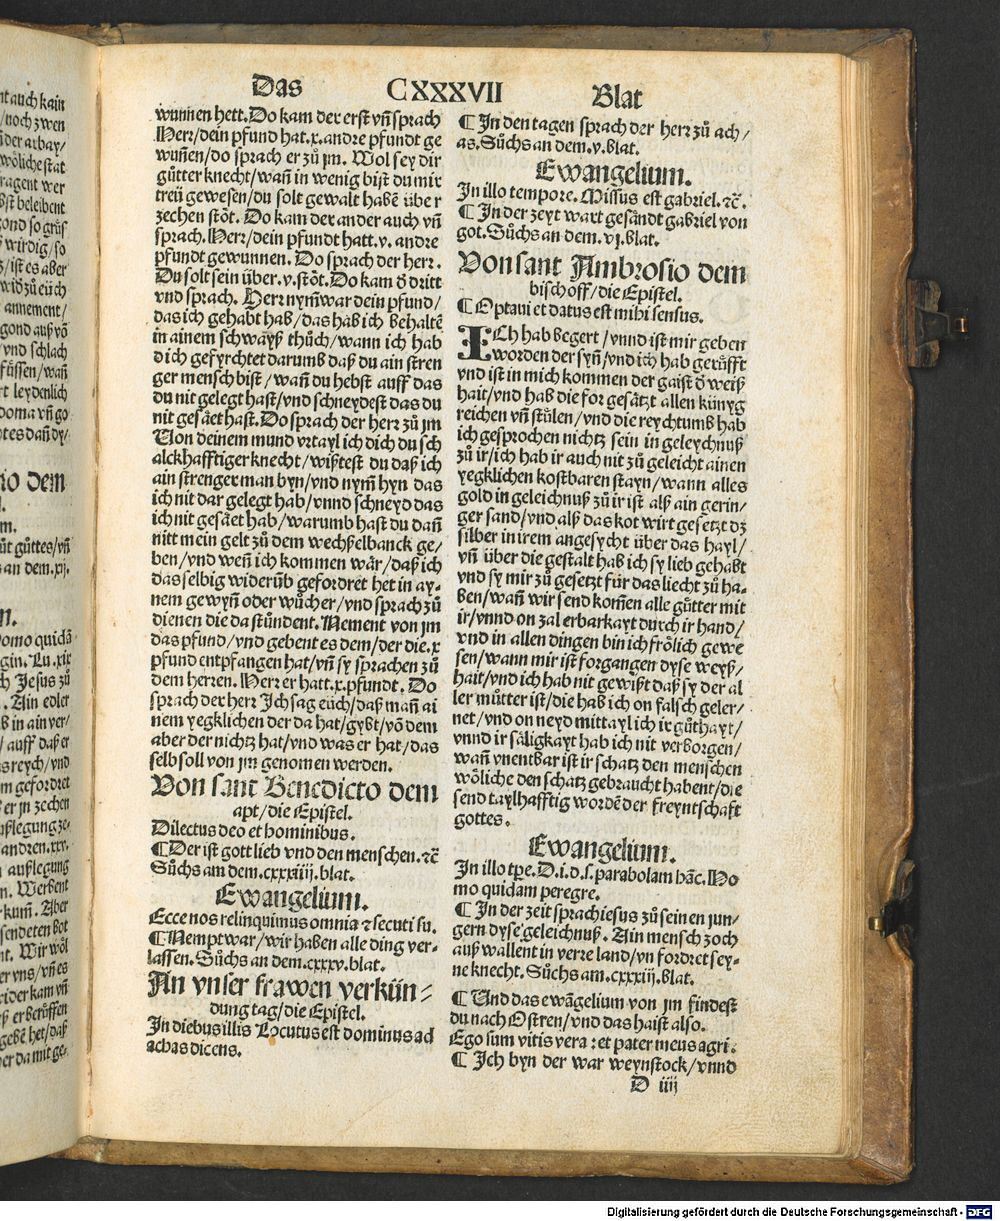 Das CXXXVII Blat
wunnen hett. Do kam der erst vñ sprach
Herr/dein pfund hat .x. andre pfundt ge
wuñen/do sprach er zů jm. Wol sey dir
gůtter knecht/wañ in wenig bist du mir
treü gewesen/du solt gewalt habẽ über
zechen stöt. Do kam der ander auch vñ
sprach. Herr/dein pfundt hatt .v. andre
pfundt gewunnen. Do sprach der herr.
Du solt sein über .v. stöt. Do kam d dritt
vnd sprach. Herr nym̃ war dein pfund/
das ich gehabt hab/das hab ich behaltẽ
in ainem schwayß thůch/wann ich hab
dich gefyrchtet darumb daß du ain stren
ger mensch bist/wañ du hebst auff das
du nit gelegt hast/vnd schneydest das du
nit gesäet hast. Do sprach der herr zů jm
Von deinem mund vrtayl ich dich du sch
alckhafftiger knecht/wißtest du daß ich
ain strenger man byn/vnd nym̃ hyn das
ich nit dar gelegt hab/vnnd schneyd das
ich nit gesäet hab/warumb hast du dañ
nitt mein gelt zů dem wechßelbanck ge/
ben/vnd weñ ich kommen wär/daß ich
das selbig widerüb gefordret het in ay-
nem gewyñ oder wůcher/vnd sprach zů
dienen die da stůndent. Nement von jm
das pfund/vnd gebent es dem/der die .x
pfund entpfangen hat/vñ sy sprachen zů
dem herren. Herr er hatt .x. pfundt. Do
sprach der herr Ich sag eüch/daß mañ ai
nem yegklichen der da hat/gybt/võ dem
aber der nichtz hat/vnd was er hat/das
selb soll von jm genomen werden.
Von sant Benedicto dem
apt/die Epistel.
Dilectus deo et hominibus.
¶ Der ist gott lieb vnd den menschen. ⁊c̃
Sůchs am dem .cxxxiiij. blat.
Ewangelium.
Ecce nos relinquimus omnia ⁊ secuti su.
¶ Nempt war/wir haben alle ding ver-
lassen. Sůchs an dem .cxxxv. blat.
An vnser frawen verkün-
dung tag/die Epistel.
In diebus illis Locutus est dominus ad
achas dicens.
¶ In den tagen sprach der herr zů ach/
as. Sůchs an dem .v. blat.
Ewangelium.
In illo tempore. Missus est gabriel. ⁊c̃.
¶ In der zeyt wart gesandt gabriel von
got. Sůchs an dem .vj. blat.
Von sant Ambrosio dem
bischoff/die Epistel.
¶ Optaui et datus est mihi sensus.
ICh hab begert/vnnd ist mir geben
worden der syñ/vnd ich hab gerůfft
vnd ist in mich kommen der gaist d weiß
hait/vnd hab die for gesätzt allen künyg
reichen vñ stülen/vnd die reychtumb hab
ich gesprochen nichtz sein in geleychnuß
zů ir/ich hab ir auch nit zů geleicht ainen
yegklichen kostbaren stayn/wann alles
gold in geleichnuß zů ir ist alß ain gerin/
ger sand/vnd alß das kot wirt gesetzt dz
silber in irem angesycht über das hayl/
vñ über die gestalt hab ich sy lieb gehabt
vnd sy mir zů gesetzt für das liecht zů ha-
ben/wañ wir send kom̃en alle gůtter mit
ir/vnnd on zal erbarkayt durch ir hand/
vnd in allen dingen bin ich frölich gewe
sen/wann mir ist forgangen dyse weyß/
hait/vnd ich hab nit gewißt daß sy der al
ler můtter ist/die hab ich on falsch geler-
net/vnd on neyd mittayl ich ir gůthayt/
vnnd ir säligkayt hab ich nit verborgen/
wañ vnentbar ist ir schatz den menschen
wöliche den schatz gebraucht habent/die
send taylhafftig wordẽ der freyntschaft
gottes.
Ewangelium.
In illo tp̃e. D. i. d. s. parabolam hãc. Ho
mo quidam peregre.
¶ In der zeit sprach iesus zů seinen jun-
gern dyse geleichnuß. Ain mensch zoch
auß wallent in verre land/vn fordret sey-
ne knecht. Sůchs am .cxxxiij. blat.
¶ Und das ewãgelium von jm findest
du nach Ostren/vnd das haist also.
Ego sum vitis vera: et pater meus agri.
¶ Ich byn der war weynstock/vnnd
D iiij
Digitalisierung gefördert durch die Deutsche Forschungsgemeinschaft - DFG